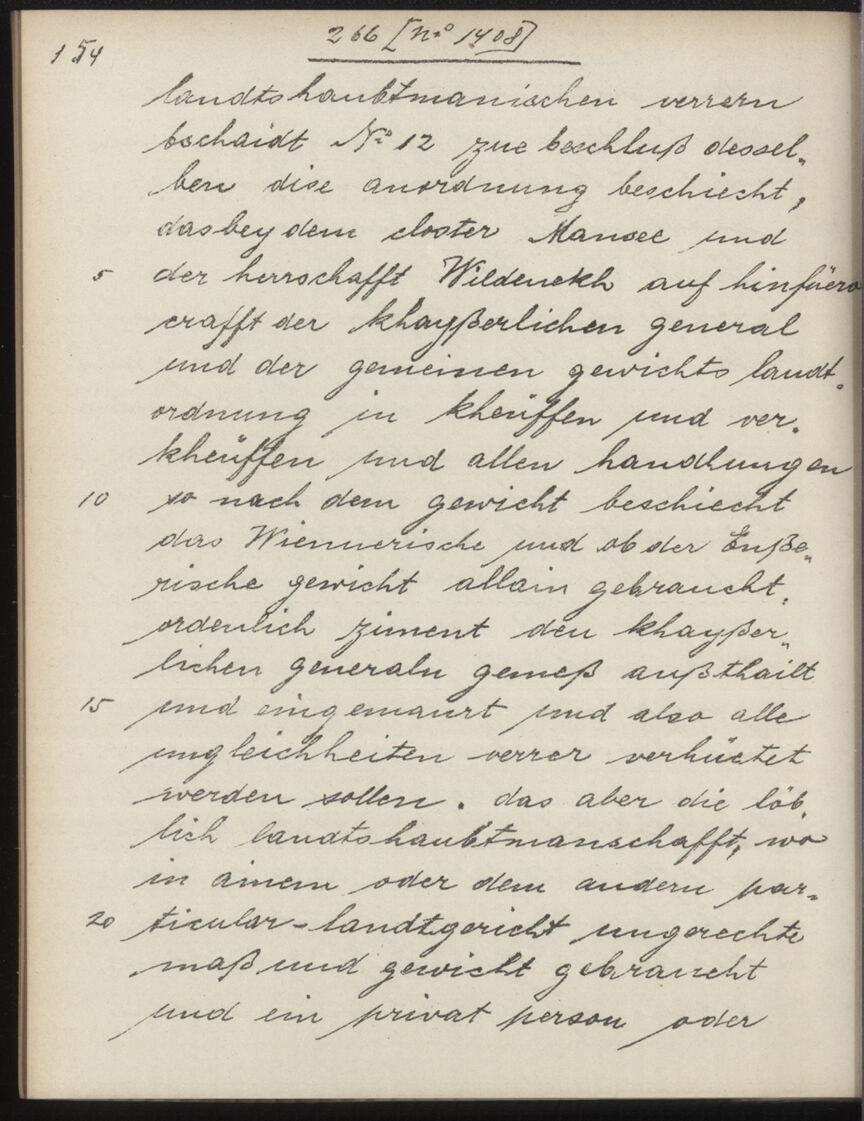 154
266 [No 1408]
landtshaubtmanischen verrern
bschaidt No 12 zue beschluß dessel„
ben dise anordnung beschiecht,
das bey dem closter Mansee und
5 der herrschafft Wildenekh auf hinfüero
crafft der khayßerlichen general
und der gemeinen gewichts landt„
ordnung in kheüffen und ver„
kheüffen und allen handlungen
10 so nach dem gewicht beschiecht
das Wiennerische und ob der Enße„
rische gewicht allain gebraucht,
ordenlich ziment den khayßer„
lichen generaln gemeß außthailt
15 und eingemaurt und also alle
ungleichheiten verrer verhüetet
werden sollen. das aber die löb„
lich landtshaubtmanschafft, wo
in ainem oder dem andern par„
20 ticular-landtgericht ungerechte
maß und gewicht gebraucht
und ein privat person oder